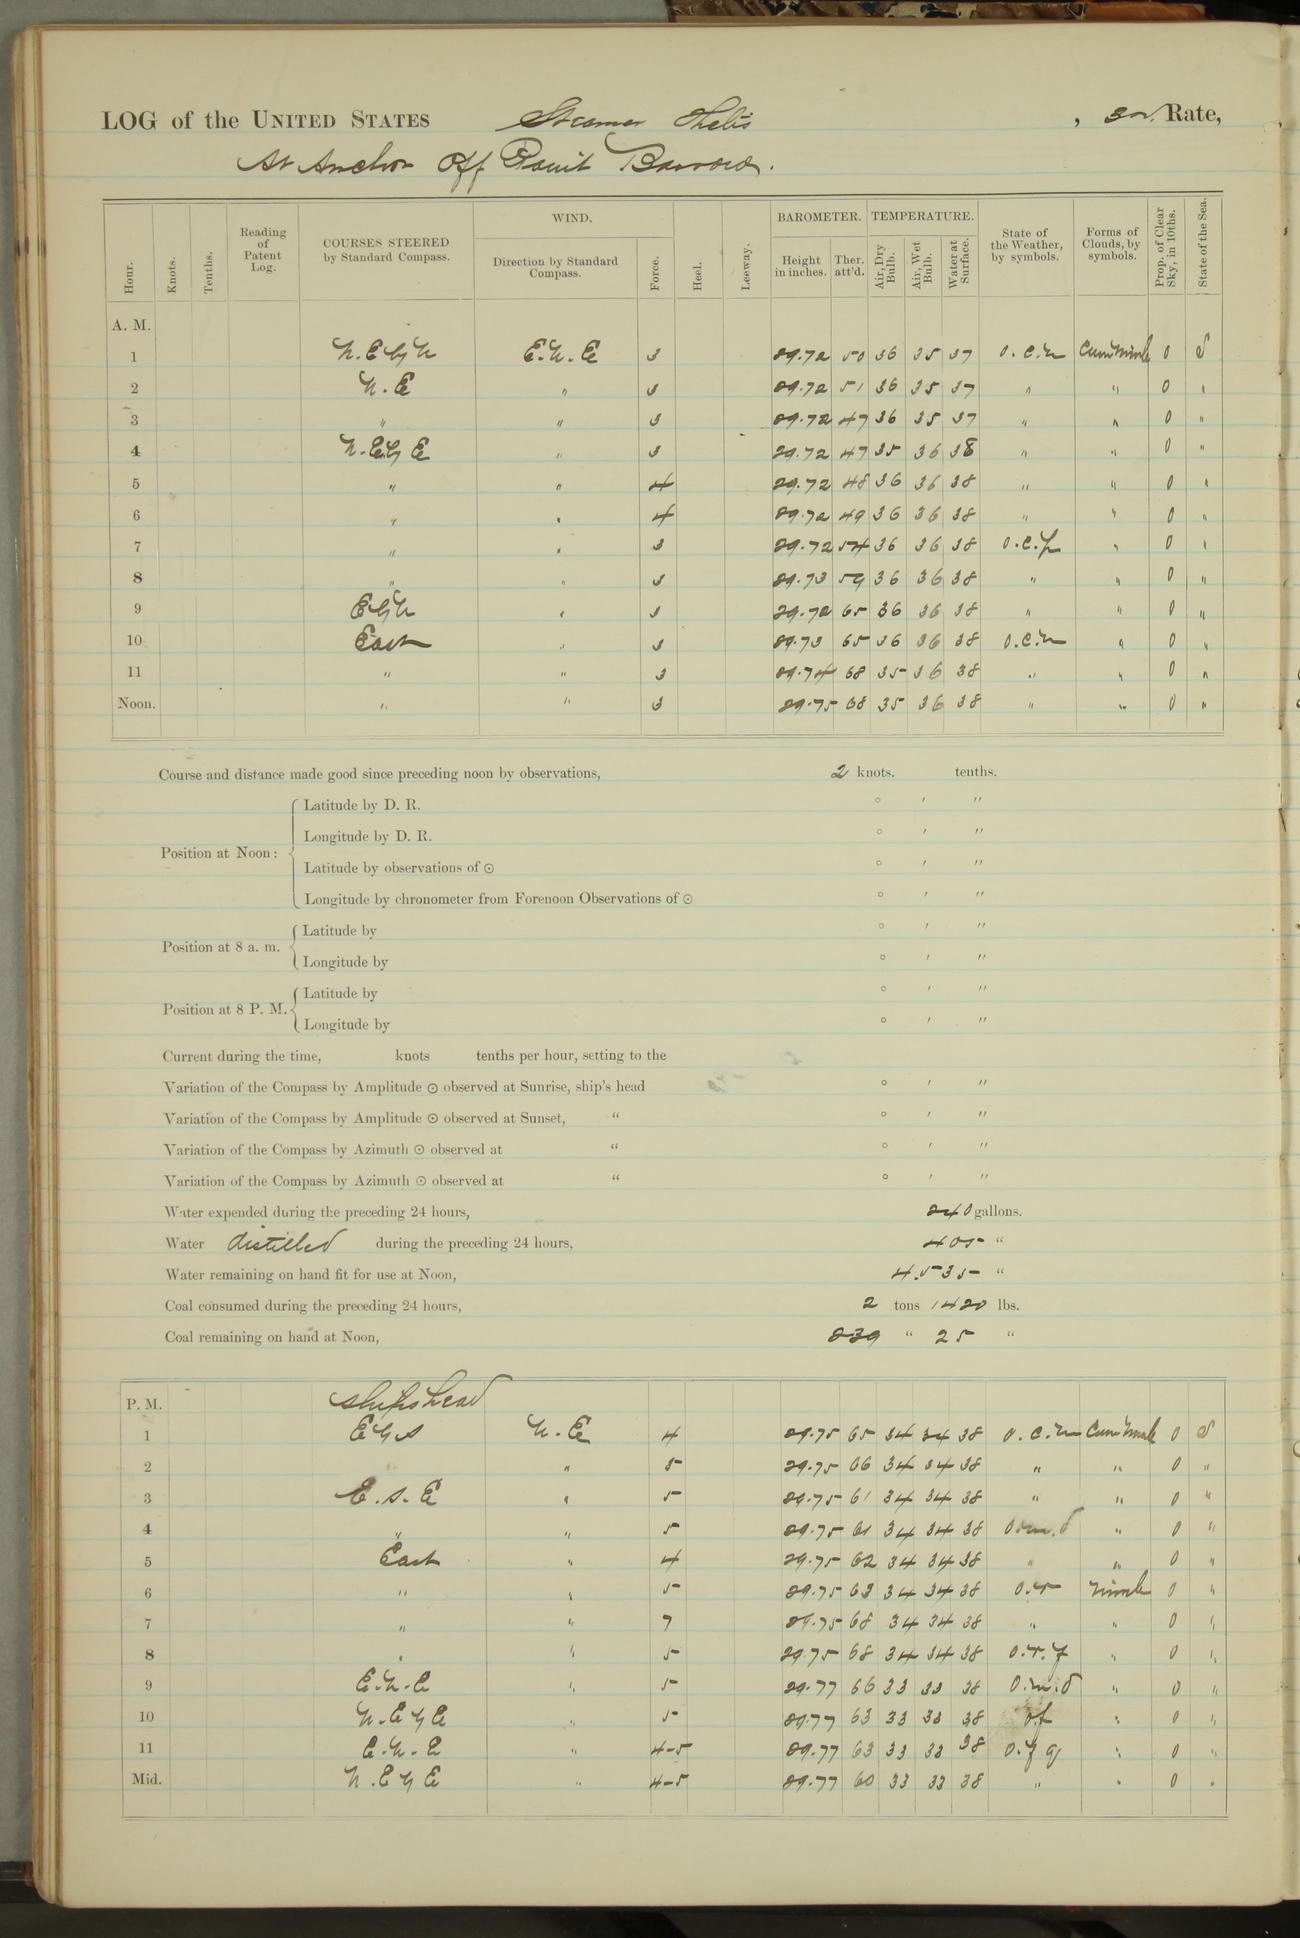 LOG of the UNITED STATES Steamer Thetis , 3rd Rate,
At Anchor Off Point Barrow.
Hour. Knots. Tenths. Reading of Patent Log. COURSES STEERED by Standard Compass. WIND. Direction by Standard Compass. Force. Heel. Leeway. BAROMETER. Height in inches. Ther. att'd. TEMPERATURE. Air, Dry Bulb. Air, Wet Bulb. Water at Surface. State of the Weather, by symbols. Forms of Clouds, by symbols. Prop. of Clear Sky, in 10ths. State of the Sea.
A. M.
1 N.E by N E.N.E 3 29.72 50 36 35 37 o.c.m Cum Nimb 0 S
2 N.E " 3 29.72 51 36 35 37 " " 0 "
3 " " 3 29.72 47 36 35 37 " " 0 "
4 N.E by E " 3 29.72 47 35 36 38 " " 0 "
5 " " 4 29.72 48 36 36 38 " " 0 "
6 " " 4 29.72 49 36 36 38 " " 0 "
7 " " 3 29.72 54 36 36 38 o.c.f " 0 "
8 " " 3 29.73 59 36 36 38 " " 0 "
9 E by N " 3 29.72 65 36 36 38 " " 0 "
10 East " 3 29.73 65 36 36 38 o.c.m " 0 "
11 " " 3 29.74 68 35 36 38 " " 0 "
Noon. " " 3 29.75 68 35 36 38 " " 0 "
Course and distance made good since preceding noon by observations, 2 knots. tenths.
Position at Noon:
Latitude by D. R. ° ' "
Longitude by D. R. ° ' "
Latitude by observations of ☉ ° ' "
Longitude by chronometer from Forenoon Observations of ☉ ° ' "
Position at 8 a. m.
Latitude by ° ' "
Longitude by ° ' "
Position at 8 P. M.
Latitude by ° ' "
Longitude by ° ' "
Current during the time, knots tenths per hour, setting to the
Variation of the Compass by Amplitude ☉ observed at Sunrise, ship's head ° ' "
Variation of the Compass by Amplitude ☉ observed at Sunset, " ° ' "
Variation of the Compass by Azimuth ☉ observed at " ° ' "
Variation of the Compass by Azimuth ☉ observed at " ° ' "
Water expended during the preceding 24 hours, 240 gallons.
Water distilled during the preceding 24 hours, 405 "
Water remaining on hand fit for use at Noon, 4.535 "
Coal consumed during the preceding 24 hours, 2 tons 1420 lbs.
Coal remaining on hand at Noon, 239 " 25 "
P. M. ships head
1 E by S N.E 4 29.75 65 34 34 38 o.c.m Cum Nimb 0 S
2 " 5 29.75 66 34 34 38 " " 0 "
3 E.S.E " 5 29.75 61 34 34 38 " " 0 "
4 " " 5 29.75 61 34 34 38 o.m.d " 0 "
5 East " 4 29.75 62 34 34 38 " " 0 "
6 " " 5 29.75 63 34 34 38 o.r Nimb 0 "
7 " " 7 29.75 68 34 34 38 " " 0 "
8 " " 5 29.75 68 34 34 38 o.r.f " 0 "
9 E.N.E " 5 29.77 66 33 33 38 o.m.d " 0 "
10 N.E by E " 5 29.77 63 33 33 38 o.f " 0 "
11 E.N.E " 4-5 29.77 63 33 33 38 o.f q " 0 "
Mid. N.E by E " 4-5 29.77 60 33 33 38 " " 0 "